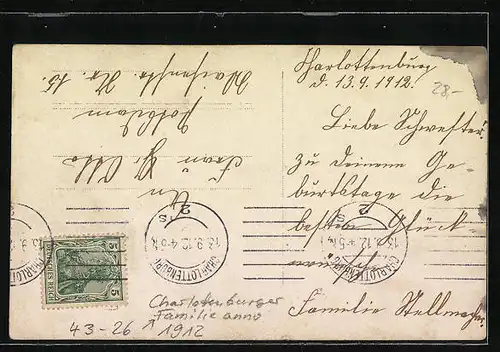 Charlottenburg
d. 13.9.1912.
28,-
Liebe Schwester!
zu deinem Ge-
burtstage die
besten Glück-
wünsche
Familie Stellmacher
An
Frau
Potsdam
Str. 15.
CHARLOTTENBURG
13.9.12.4-5N
2
CHARLOTTENBURG
13.9.12.4-5N
2
DEUTSCHES REICH
5 5
Charlottenburger
Familie anno
1912
43-26